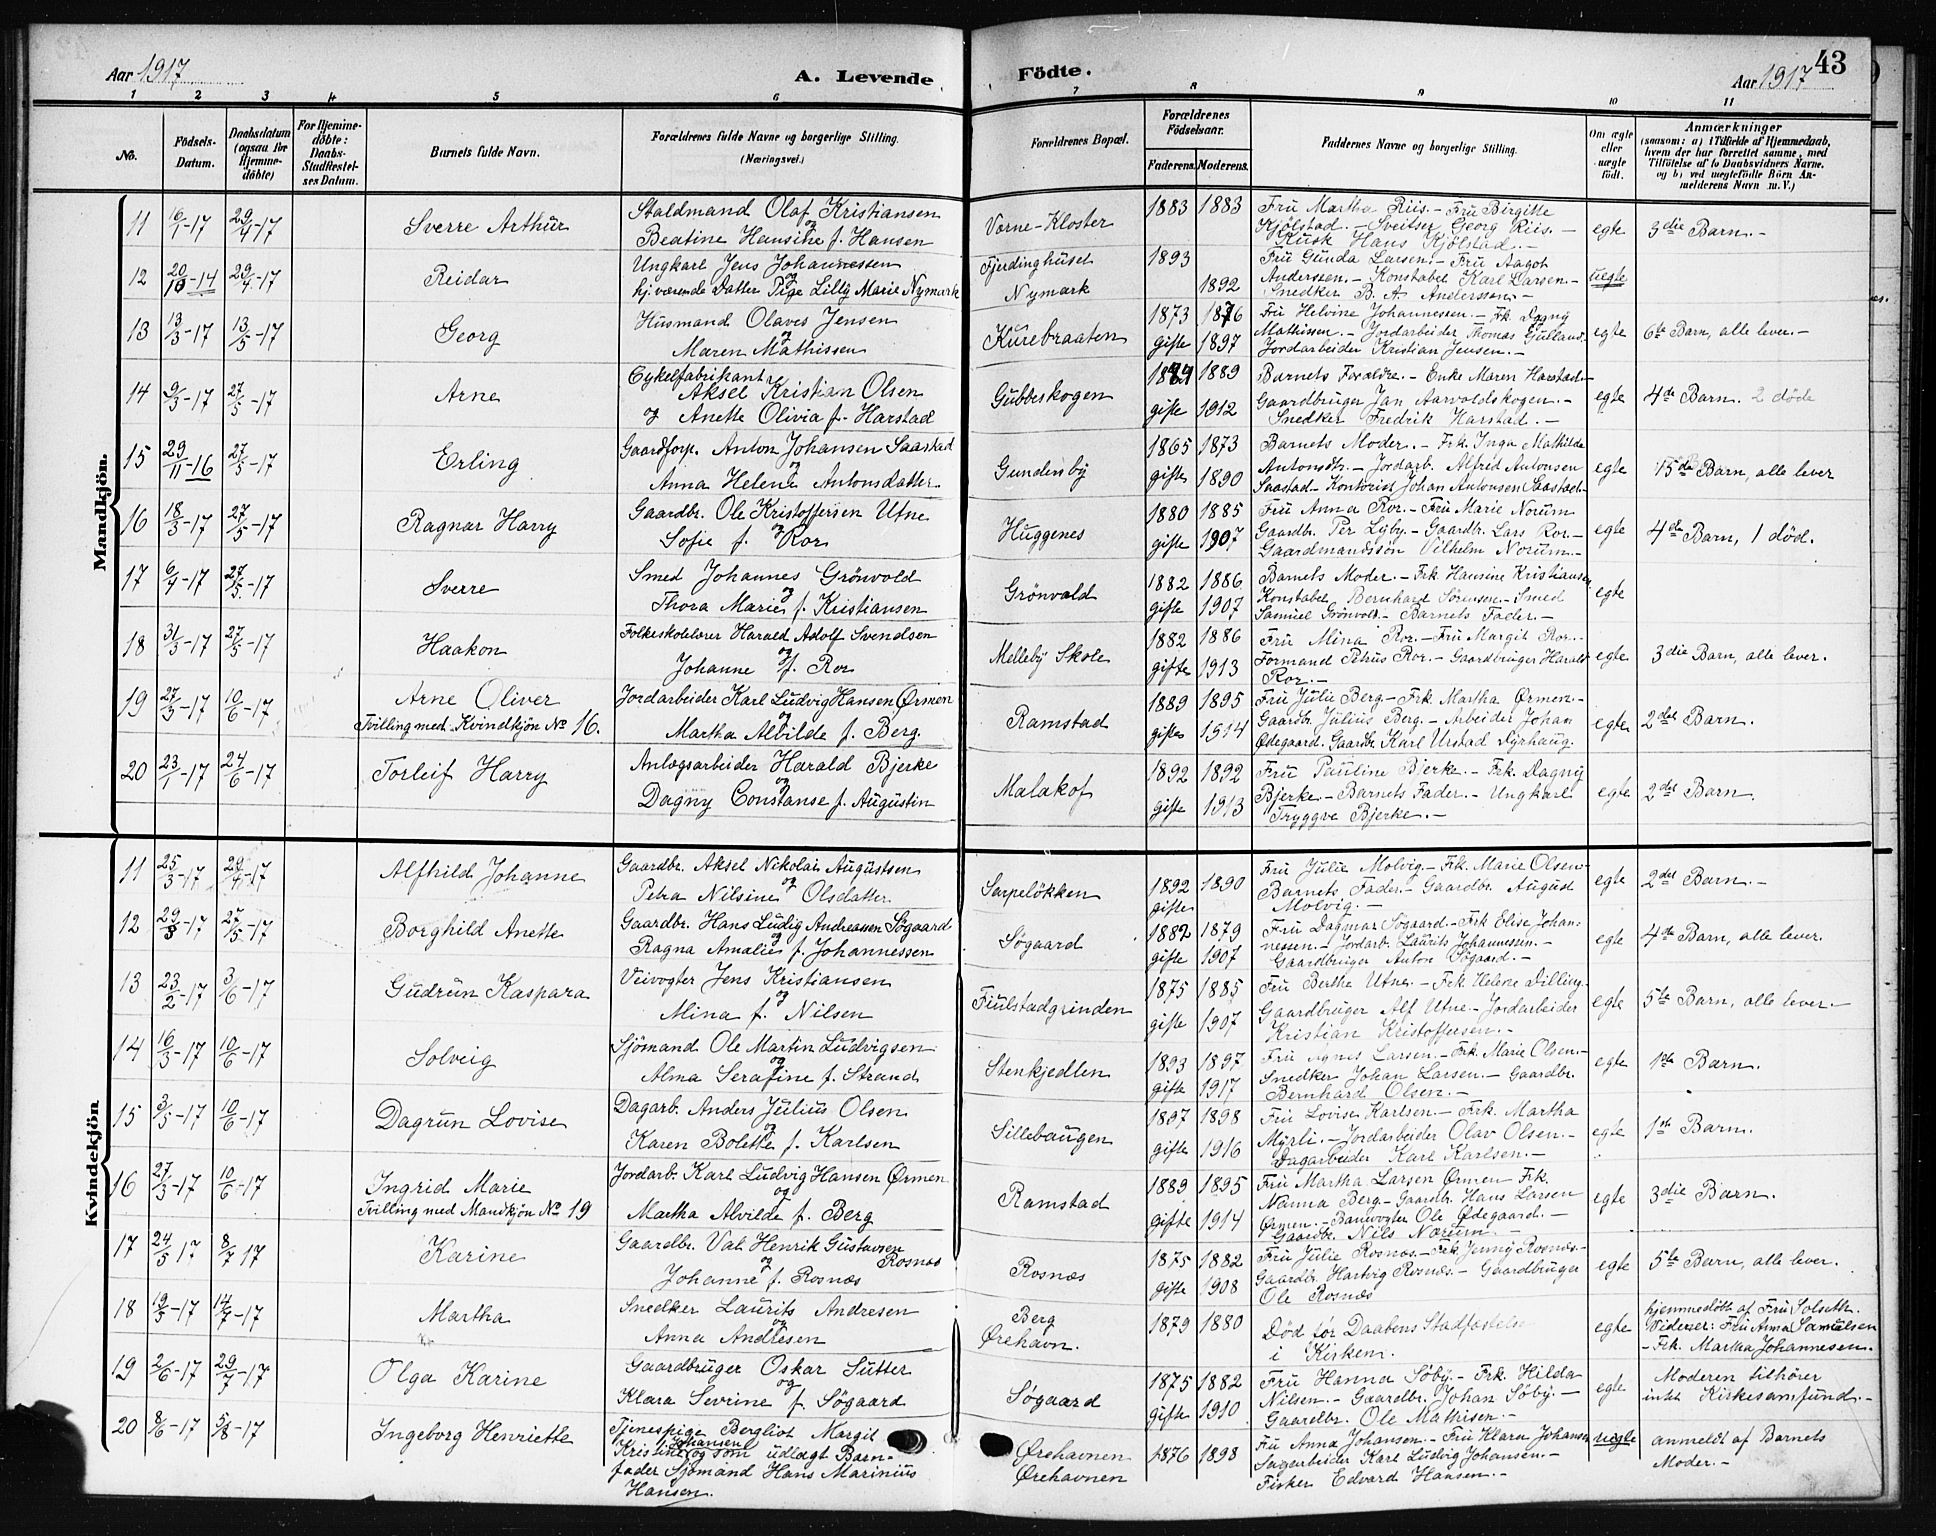 43
Aar 1917
A. Levende Födte.
Aar 1917
1 2 3 4 5 6 7 8 9 10 11
No.
Födsels-Datum.
Daabsdatum (ogsaa for Hjemme-döbte)
For Hjemme-döbte: Daabs-Stadfæstel-ses Datum.
Barnets fulde Navn.
Forældrenes fulde Navne og borgerlige Stilling.
(Næringsvei.)
Forældrenes Bopæl.
Forældrenes Födselsaar.
Faderens. Moderens.
Faddernes Navne og borgerlige Stilling.
Om ægte eller uægte födt.
Anmærkninger
(saasom: a) i Tilfælde af Hjemmedaab, hvem der har forrettet samme, med Tilföielse af to Daabsvidners Navne, og b) ved uægtefödte Börn Anmelderens Navn m. V.)
Mandkjön.
11 16/1-17 29/4-17 Sverre Arthur Staldmand Olaf Kristiansen og Beatine Hansine f. Hansen Vorne-Kloster 1883 1883 Fru Martha Riis.- Fru Birgitte Kjölstad.- Sveitser Georg Riis.- Kusk Hans Kjölstad.- egte 3die Barn.-
12 20/10-14 29/4-17 Reidar Ungkarl Jens Johannessen og hj. værende Datter Pige Lilly Marie Nymark Fjerdinghuset Nymark 1893 1892 Fru Gunda Larsen.- Fru Aagot Anderssen.- Konstabel Karl Larsen.- Snedker B. A. Anderssen.- uegte
13 13/3-17 13/5-17 Georg Husmand Olaves Jensen og Maren Mathissen Kurebraaten 1873 1876 gifte 1897 Fru Helvine Johannessen.- Frk. Dagny Mathissen.- Jordarbeider Thomas Gulland.- Jordarbeider Kristian Jensen.- egte 6te Barn, alle lever.-
14 9/3-17 27/5-17 Arne Cykelfabrikant Aksel Kristian Olsen og Anette Olivia f. Harstad Gubbeskogen 1889 gifte 1912 Barnets Forældre.- Enke Maren Harstad.- Gaardbruger Jan Aarvoldskogen.- Snedker Fredrik Harstad.- egte 4de Barn. 2 döde
15 29/11-16 27/5-17 Erling Gaardforp. Anton Johansen Saastad og Anna Helene Antonsdatter Gundersby 1865 1873 gifte 1890 Barnets Moder.- Frk. Inga Mathilde Antonsdtr.- Jordarb. Alfred Antonsen Saastad.- Kontorist Johan Antonsen Saastad.- egte 15de Barn, alle lever
16 18/3-17 27/5-17 Ragnar Harry Gaardbr. Ole Kristoffersen Utne og Sofie f. Ror Huggenes 1880 1885 gifte 1907 Fru Anna Ror.- Fru Marie Norum Gaardbr. Per Lyby.- Gaardbr. Lars Ror.- Gaardmandssön Vilhelm Norum.- egte 4de Barn, 1 död.
17 6/4-17 27/5-17 Sverre Smed Johannes Grönvold og Thora Marie f. Kristiansen Grönvold 1882 1886 gifte 1907 Barnets Moder.- Frk. Hansine Kristiansen Konstabel Bernhard Sörensen.- Smed Samuel Grönvold.- Barnets Fader.- egte
18 31/3-17 27/5-17 Haakon Folkeskolelærer Harald Adolf Svendsen og Johanne f. Ror Melleby Skole 1882 1886 gifte 1913 Fru Mina Ror.- Fru Margit Ror.- Formand Petrus Ror.- Gaardbruger Harald Ror.- egte 3die Barn, alle lever.
19 27/3-17 10/6-17 Arne Oliver Tvilling med Kvindkjön No 16. Jordarbeider Karl Ludvig Hansen Ørmen og Martha Alvilde f. Berg Ramstad 1889 1895 giftes 1914 Fru Julie Berg.- Frk. Martha Ørmen.- Gaardbr. Julius Berg.- Arbeider Johan Ødegaard. Gaardbr. Karl Urstad Dyrhaug. egte 2det Barn.
20 23/1-17 24/6-17 Torleif Harry Anlægsarbeider Harald Bjerke og Dagny Constanse f. Augustin Malakof 1892 1892 gifte 1913 Fru Pauline Bjerke.- Frk. Dagny Bjerke.- Barnets Fader.- Ungkarl Tryggve Bjerke.- egte 2det Barn.
Kvindekjön
11 25/3-17 29/4-17 Alfhild Johanne Gaardbr. Aksel Nikolai Augustsen og Petra Nilsine Olsdatter Sæpelökken 1892 1890 gifte Fru Julie Molvig.- Frk. Marie Olsen.- Barnets Fader.- Gaardbr. August Molvig.- egte 2det Barn.-
12 29/3-17 27/5-17 Borghild Anette Gaardbr. Hans Ludig Andreassen Søgaard og Ragna Amalie f. Johannessen Søgaard 1882 1879 gifte 1907 Fru Dagmar Søgaard.- Frk Elise Johannessen.- Jordarb. Laurits Johannessen.- Gaardbruger Anton Søgaard.- egte 4de Barn, alle lever.
13 23/2-17 3/6-17 Gudrun Kaspara Veivogter Jens Kristiansen og Mina f. Nilsen Fiulstadgrinden 1875 1885 gifte 1907 Fru Berthe Utne.- Frk Helene Dilling.- Gaardbruger Alf Utne.- Jordarbeider Kristian Kristoffersen.- egte 5te Barn, alle lever.-
14 16/3-17 10/6-17 Solveig Sjömand Ole Martin Ludvigsen og Alma Serafine f. Strand Stenkjedlen 1893 1897 gifte 1917 Fru Agnes Larsen.- Frk. Marie Olsen.- Snedker Johan Larsen.- Gaardbr. Bernhard Olsen.- egte 1ste Barn.
15 3/5-17 10/6-17 Dagrun Lovise Dagarb. Anders Julius Olsen og Karen Bolette f. Karlsen Sillebaugen 1897 1898 gifte 1916 Fru Lovise Karlsen.- Frk. Martha Myrli.- Jordarbeider Olav Olsen.- Dagarbeider Karl Karlsen.- egte 1ste Barn.
16 27/3-17 10/6-17 Ingrid Marie Tvilling med Mandkjön No 19 Jordarb. Karl Ludvig Hansen Ørmen og Martha Alvilde f. Berg Ramstad 1889 1895 Gifte 1914 Fru Martha Larsen Ørmen Frk. Nanna Berg.- Gaardbr. Hans Larsen Ørmen.- Banevogter Ole Ødegaard.- Gaardbr. Nils Norum.- egte 3die Barn.
17 24/5 17 8/7 17 Karine Gaardbr. Val. Henrik Gustavsen Rosnæs og Johanne f. Rosnæs Rosnæs 1875 1882 gifte 1908 Fru Julie Rosnæs.- Frk Jenny Rosnæs.- Gaardbr. Hartvig Rosnæs.- Gaardbruger Ole Rosnæs egte 5te Barn, alle lever.
18 19/5-17 14/7-17 Martha Snedker Laurits Andresen og Anna Andresen Berg Ørehavn. 1879 1880 Död för Daabens Stadfæstelse i Kirken. egte hjemmedöbt af Fru Solseth. Vidner: Fru Anna Samuelsen - Frk. Martha Johannesen.
19 2/6-17 29/7-17 Olga Karine Gaardbruger Oskar Sutter og Klara Sevrine f. Søgaard Søgaard 1875 1882 Gifte 1910 Fru Hanna Söby.- Frk. Hilda Nilsen.- Gaardbr. Johan Söby.- Gaardbr. Ole Mathisen.- egte Moderen tilhörer intet Kirkesamfund.-
20 8/6-17 5/8-17 Ingeborg Henriette Tjenespige Bergliot Margit Kristine Johansen og som udlagt Barnefader Sjömand Hans Marinius Hansen. Ørehavnen Ørehavnen 1876 1898 Fru Anna Johansen.- Fru Klara Johansen Sagarbeider Karl Ludvig Johansen.- Fisker Edvard Hansen.- uegte anmeldt af Barnets Moder.-